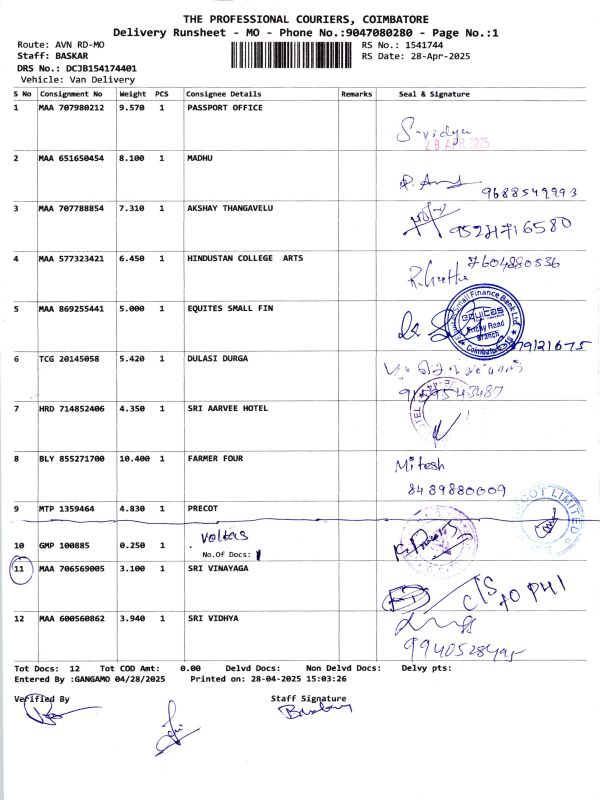 THE PROFESSIONAL COURIERS, COIMBATORE
Delivery Runsheet - MO - Phone No.:9047080280 - Page No.:1
Route: AVN RD-MO RS No.: 1541744
Staff: BASKAR RS Date: 28-Apr-2025
DRS No.: DCJB154174401
Vehicle: Van Delivery
S No Consignment No Weight PCS Consignee Details Remarks Seal & Signature
1 MAA 707980212 9.570 1 PASSPORT OFFICE
S-vidya
28 APR 2025
2 MAA 651650454 8.100 1 MADHU
9688549993
3 MAA 707788854 7.310 1 AKSHAY THANGAVELU
9524716580
4 MAA 577323421 6.450 1 HINDUSTAN COLLEGE ARTS
7604880536
5 MAA 869255441 5.000 1 EQUITES SMALL FIN
Equitas Small Finance Bank Ltd
equitas
Trichy Road
Branch
Coimbatore
6 TCG 20145058 5.420 1 DULASI DURGA
9159543487
7 HRD 714852406 4.350 1 SRI AARVEE HOTEL
8 BLY 855271700 10.400 1 FARMER FOUR
Mitesh
8489880009
9 MTP 1359464 4.830 1 PRECOT
PRECOT LIMITED
10 GMP 100885 0.250 1 . Voltas
No.Of Docs: 1
11 MAA 706569005 3.100 1 SRI VINAYAGA
12 MAA 600560862 3.940 1 SRI VIDHYA
9940528495
Tot Docs: 12 Tot COD Amt: 0.00 Delvd Docs: Non Delvd Docs: Delvy pts:
Entered By :GANGAMO 04/28/2025 Printed on: 28-04-2025 15:03:26
Verified By Staff Signature